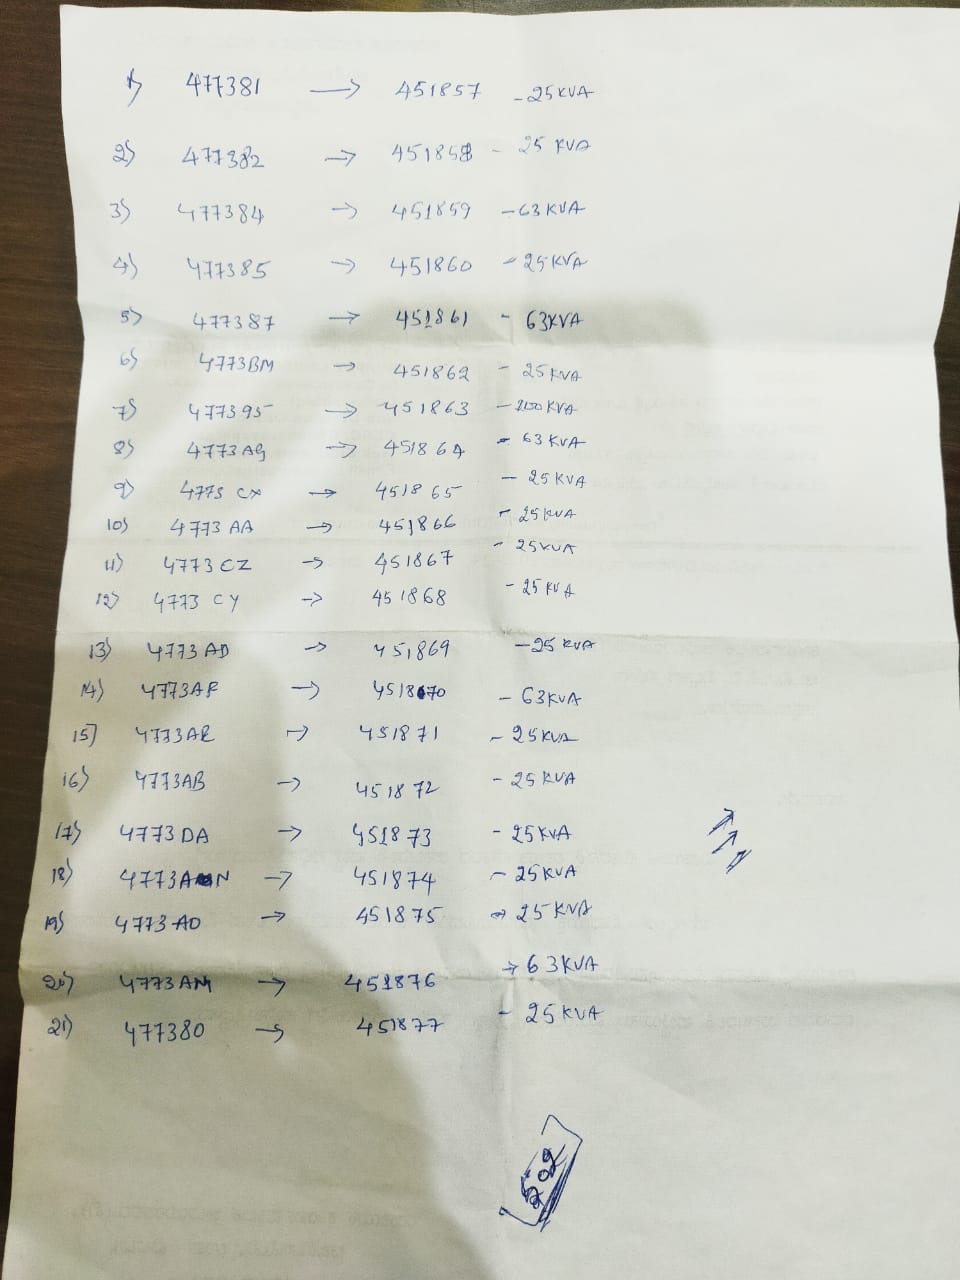 1) 477381 → 451857 - 25 KVA
2) 477382 → 451858 - 25 KVA
3) 477384 → 451859 - 63 KVA
4) 477385 → 451860 - 25 KVA
5) 477387 → 451861 - 63 KVA
6) 4773BM → 451862 - 25 KVA
7) 477395 → 451863 - KVA
8) 4773AG → 451864 - 63 KVA
9) 4773 CX → 451865 - 25 KVA
10) 4773 AA → 451866 - 25 KVA
11) 4773 CZ → 451867 - 25 KVA
12) 4773 CY → 451868 - 25 KVA
13) 4773 AD → 451869 - 25 KVA
14) 4773AF → 451870 - 63 KVA
15) → 451871 - 25 KVA
16) 4773AB → 451872 - 25 KVA
17) 4773 DA → 451873 - 25 KVA
18) 4773AN → 451874 - 25 KVA
19) 4773 AO → 451875 → 25 KVA
20) 4773 AM → 451876 → 63 KVA
21) 477380 → 451877 - 25 KVA
502